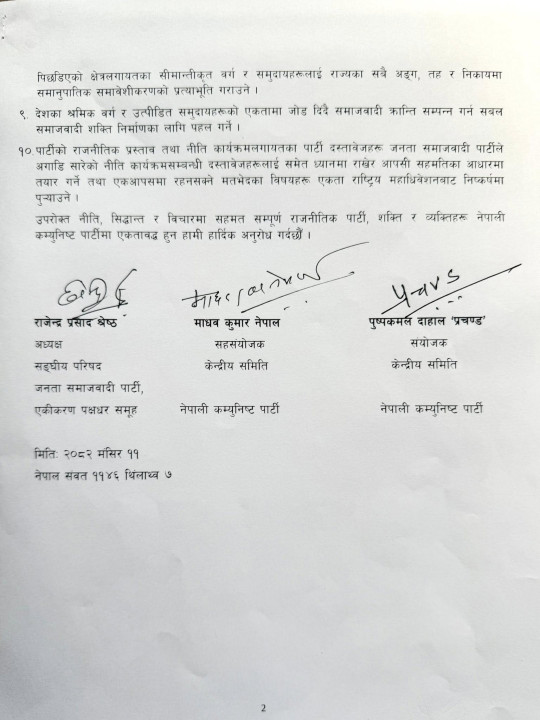 पिछडिएको क्षेत्रलगायतका सीमान्तीकृत वर्ग र समुदायहरूलाई राज्यका सबै अङ्ग, तह र निकायमा
समानुपातिक समावेशीकरणको प्रत्याभूति गराउने ।
९. देशका श्रमिक वर्ग र उत्पीडित समुदायहरूको एकतामा जोड दिदै समाजवादी क्रान्ति सम्पन्न गर्न सबल
समाजवादी शक्ति निर्माणका लागि पहल गर्ने ।
१०. पार्टीको राजनीतिक प्रस्ताव तथा नीति कार्यक्रमलगायतका पार्टी दस्तावेजहरू जनता समाजवादी पार्टीले
अगाडि सारेको नीति कार्यक्रमसम्वन्धी दस्तावेजहरूलाई समेत ध्यानमा राखेर आपसी सहमतिका आधारमा
तयार गर्ने तथा एकआपसमा रहनसक्ने मतभेदका विषयहरू एकता राष्ट्रिय महाधिवेशनबाट निष्कर्षमा
पुऱ्याउने ।
उपरोक्त नीति, सिद्धान्त र विचारमा सहमत सम्पूर्ण राजनीतिक पार्टी, शक्ति र व्यक्तिहरू नेपाली
कम्युनिष्ट पार्टीमा एकतावद्ध हुन हामी हार्दिक अनुरोध गर्दछौँ ।
प्रचण्ड
राजेन्द्र प्रसाद श्रेष्ठ माधव कुमार नेपाल पुष्पकमल दाहाल ‘प्रचण्ड’
अध्यक्ष सहसंयोजक संयोजक
सङ्घीय परिषद केन्द्रीय समिति केन्द्रीय समिति
जनता समाजवादी पार्टी,
एकीकरण पक्षधर समूह नेपाली कम्युनिष्ट पार्टी नेपाली कम्युनिष्ट पार्टी
मितिः २०८२ मंसिर ११
नेपाल संवत ११४६ थिंलाथ्व ७
2